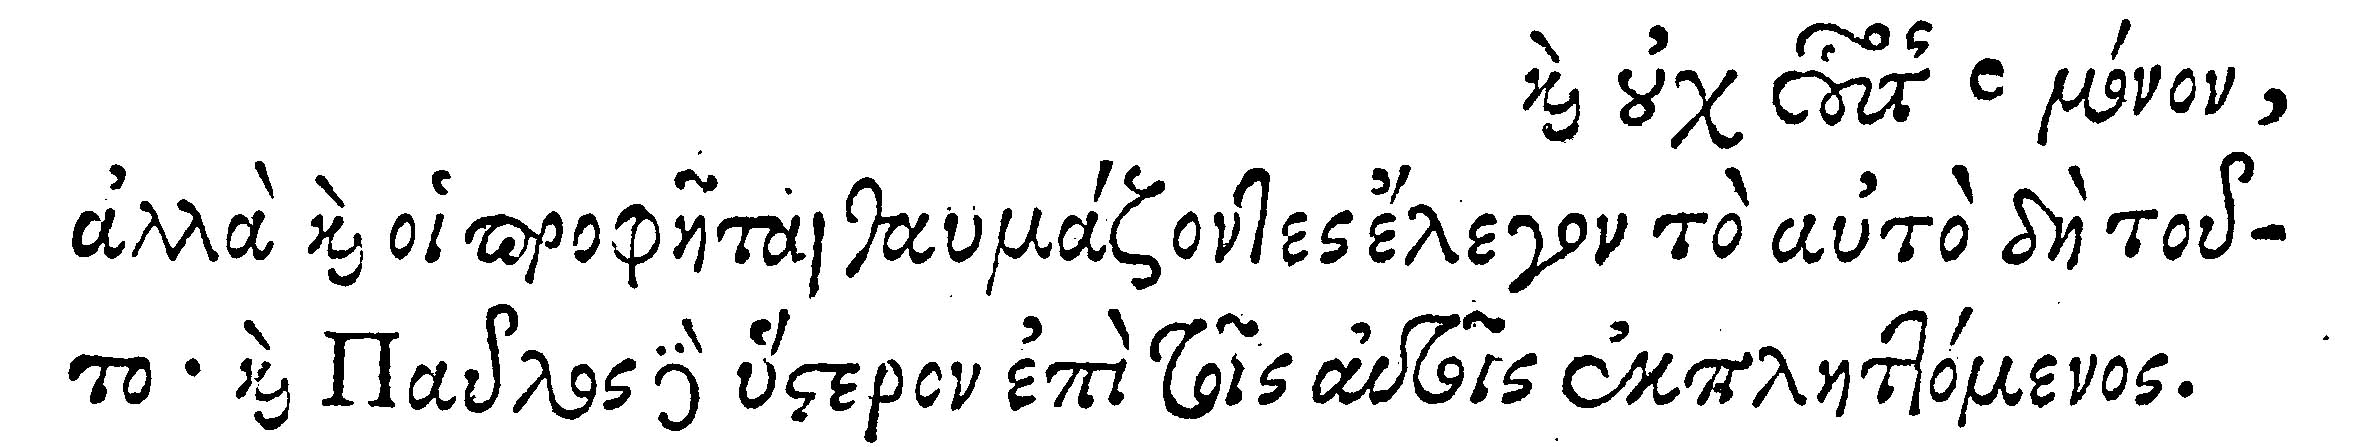 καὶ οὐχ μόνον,
ἀλλὰ καὶ οἱ προφῆται θαυμάζοντες ἔλεγον τὸ αὐτὸ δὴ τοῦ-
το· καὶ Παῦλος δὲ ὕστερον ἐπὶ τοῖς αὐτοῖς ἐκπληττόμενος.